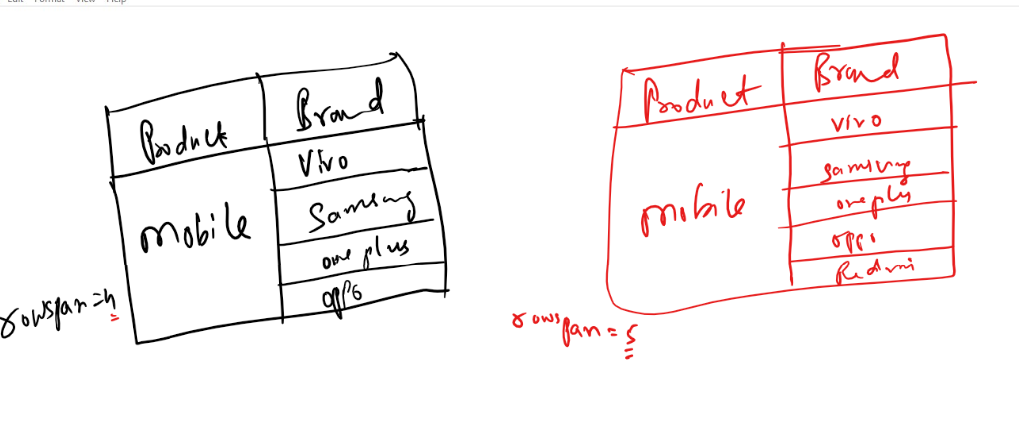 Edit Format View Help
Product Brand
mobile
Vivo
Samsung
one plus
oppo
rowspan=4
Product Brand
mobile
vivo
samsung
oneplus
oppo
Redmi
rowspan=5